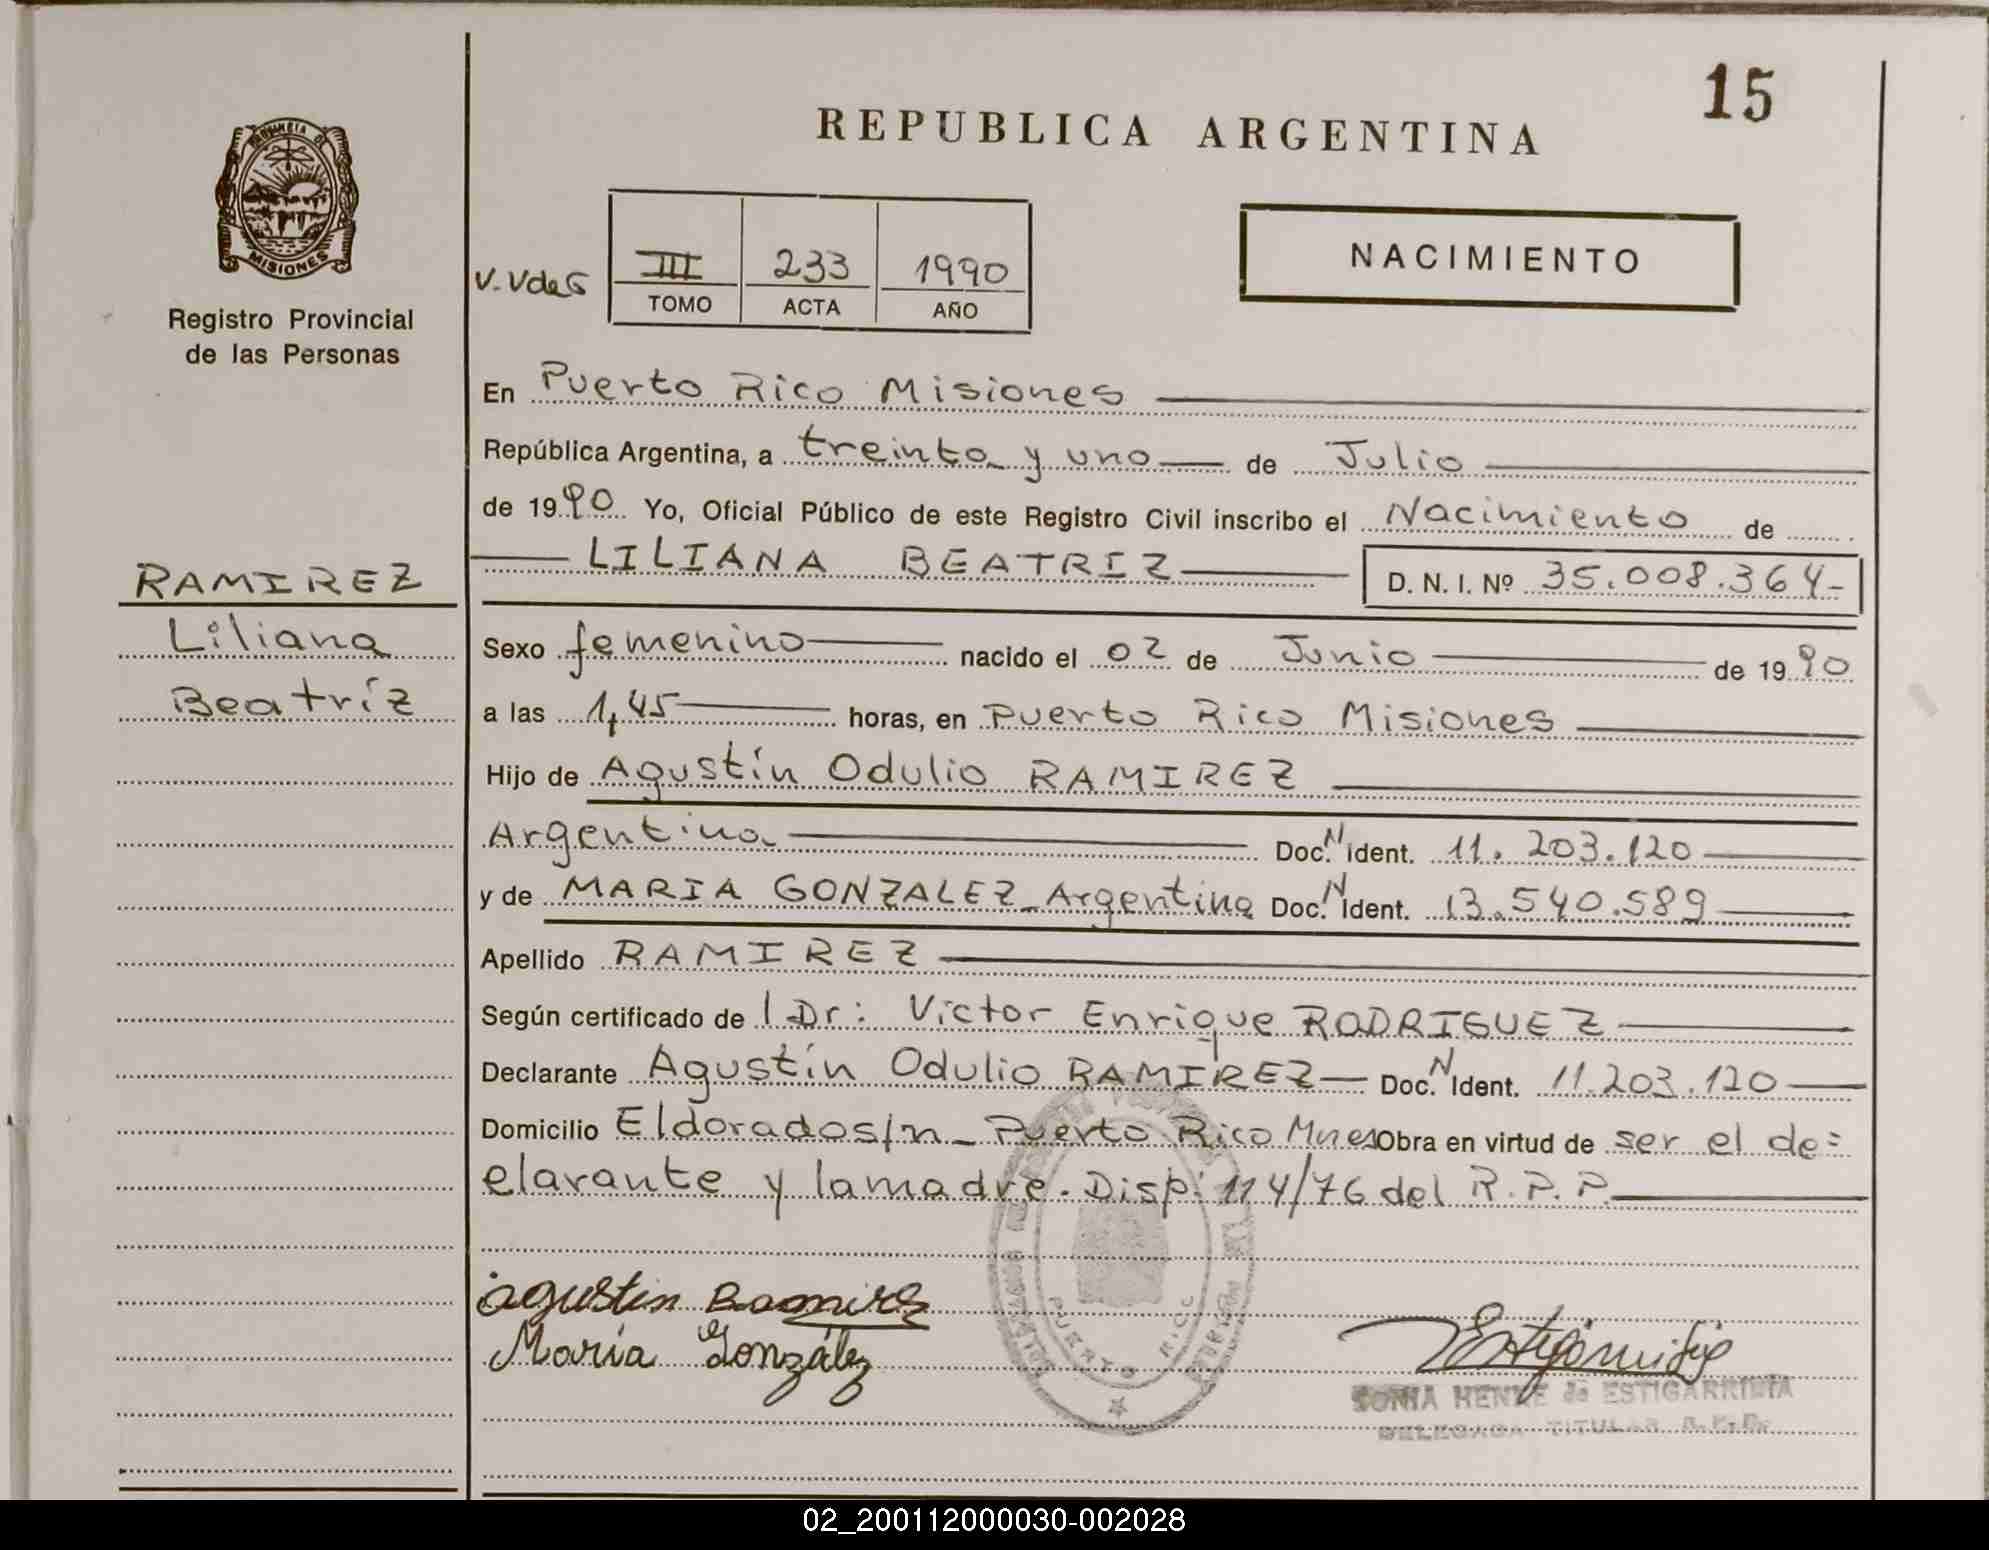 15
REPUBLICA ARGENTINA
PROVINCIA DE
MISIONES
Registro Provincial
de las Personas
V. VdeG
III 233 1990
TOMO ACTA AÑO
NACIMIENTO
En Puerto Rico Misiones
República Argentina, a treinta y uno de Julio
de 1990 Yo, Oficial Público de este Registro Civil inscribo el Nacimiento de
LILIANA BEATRIZ D. N. I. Nº 35.008.364-
RAMIREZ
Liliana
Beatríz
Sexo femenino nacido el 02 de Junio de 1990
a las 1,45 horas, en Puerto Rico Misiones
Hijo de Agustín Odulio RAMIREZ
Argentina Doc. N Ident. 11.203.120
y de MARIA GONZALEZ_Argentina Doc. N Ident. 13.540.589
Apellido RAMIREZ
Según certificado de l Dr: Victor Enrique RODRIGUEZ
Declarante Agustín Odulio RAMIREZ Doc. N Ident. 11.203.120
Domicilio Eldorado s/n_ Puerto Rico Mnes Obra en virtud de ser el de=
clarante y la madre. Disp: 114/76 del R.P.P.
agustin Ramires
María González
PUERTO RICO
SONIA HENNE de ESTIGARRIBIA
DELEGADA TITULAR R.P.P.
02_200112000030-002028